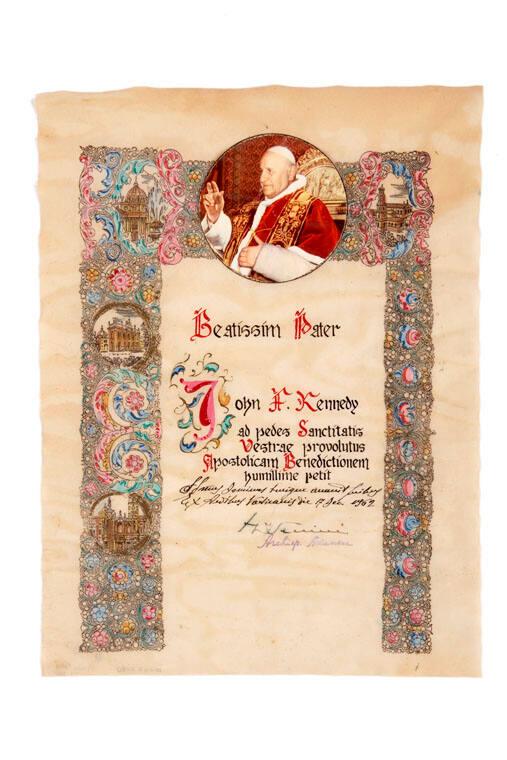 Beatissim Pater
John F. Kennedy
ad pedes Sanctitatis
Vestrae provolutus
Apostolicam Benedictionem
humillime petit
Dominus
Ex Aedibus Vaticanis die 1962